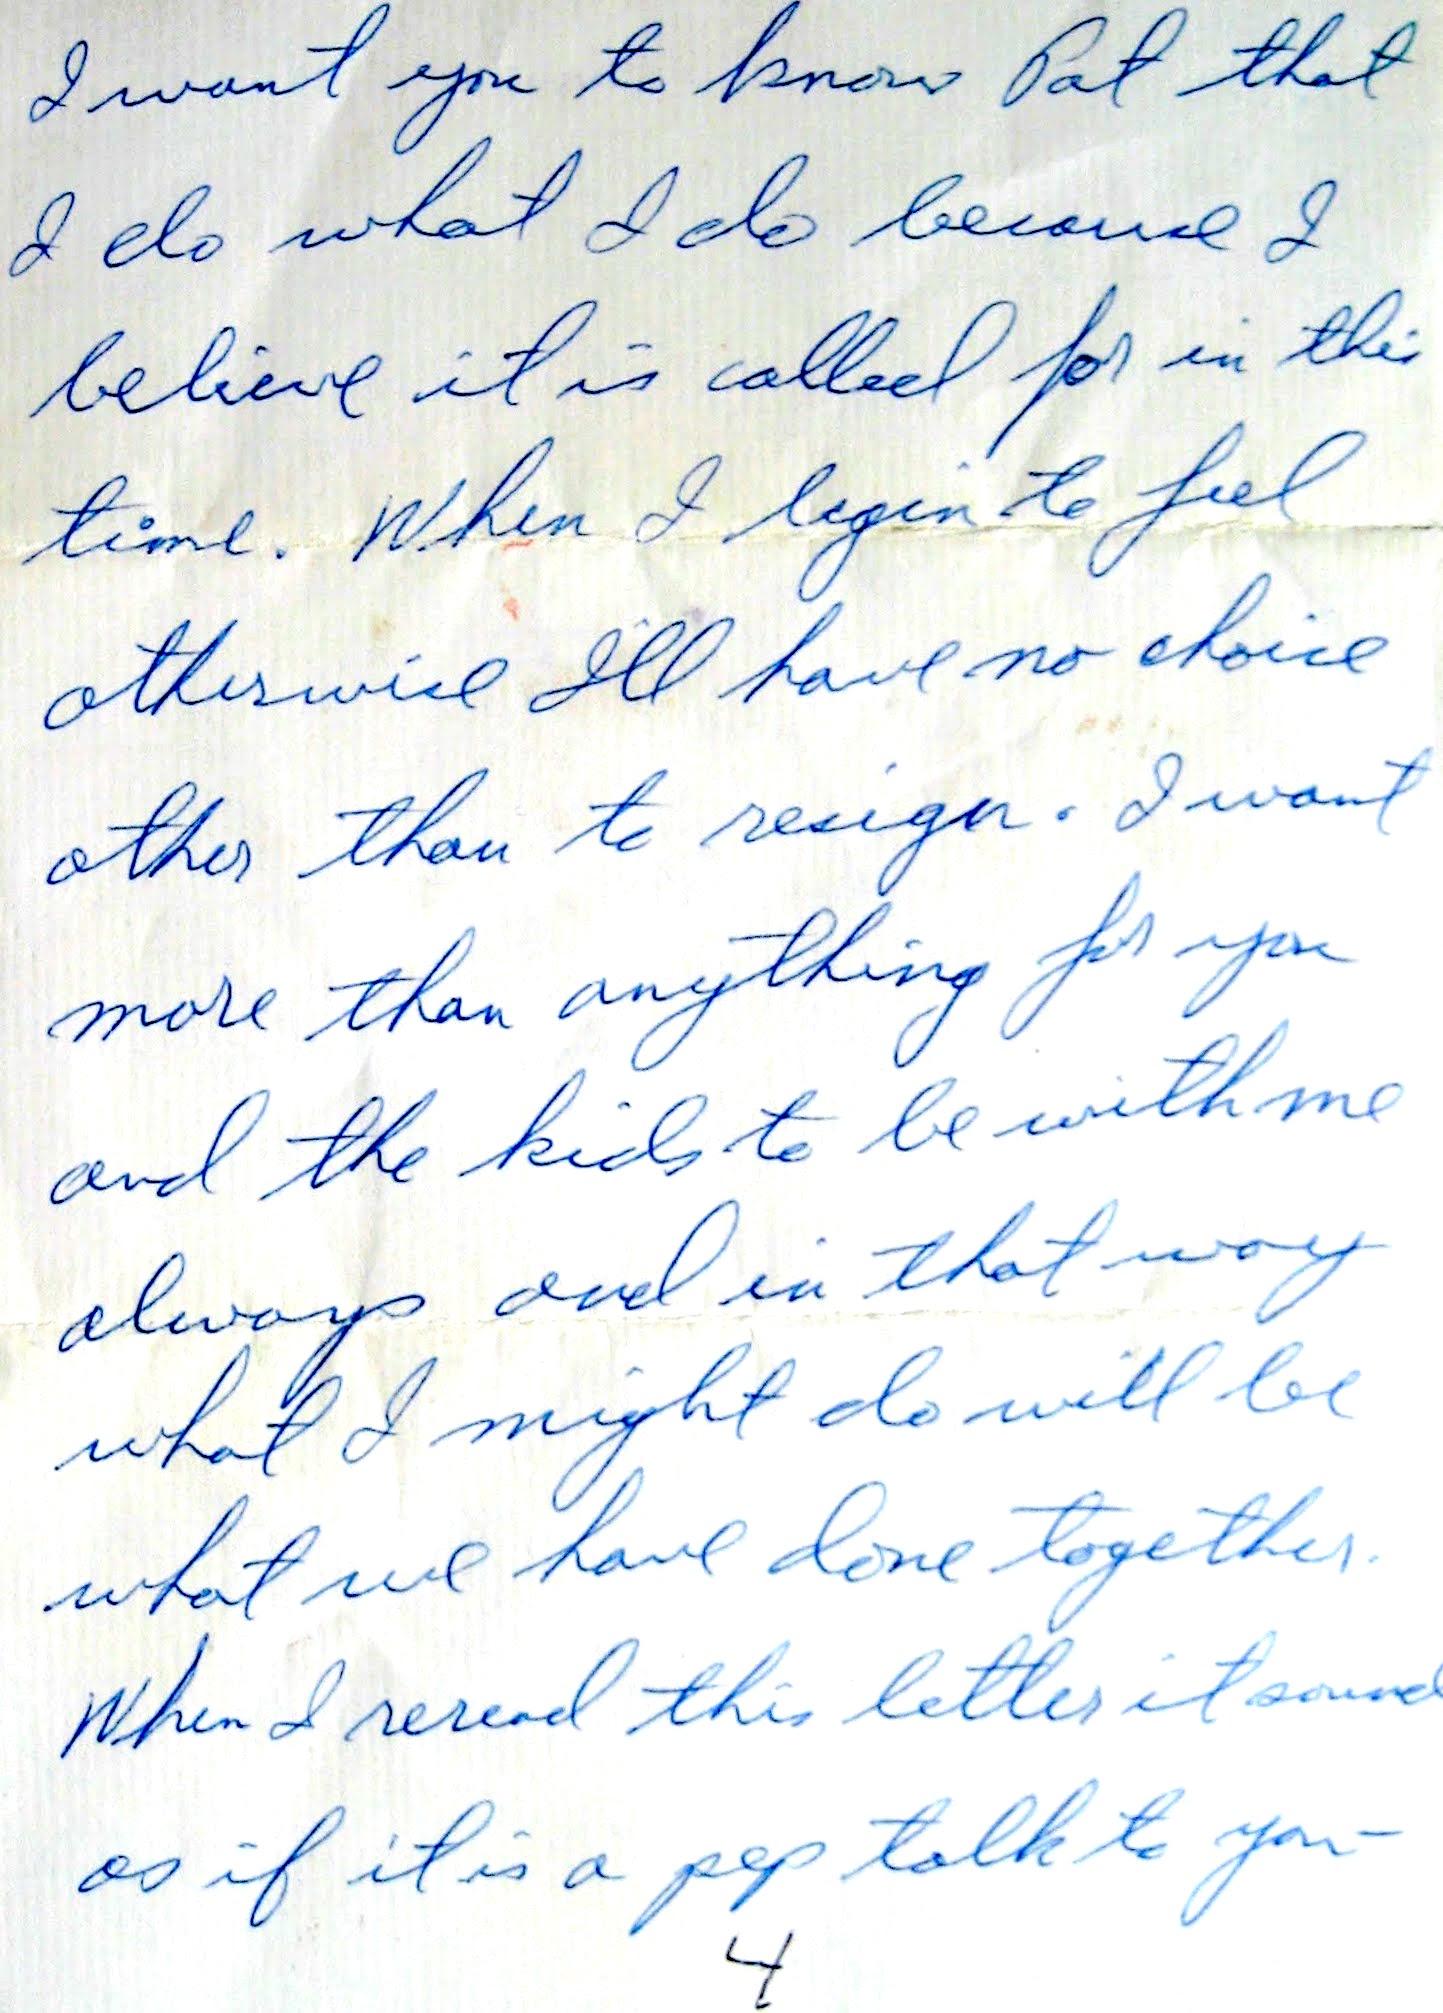 I want you to know Pat that
I do what I do because I
believe it is called for in this
time. When I begin to feel
otherwise I'll have no choice
other than to resign. I want
more than anything for you
and the kids to be with me
always and in that way
what I might do will be
what we have done together.
When I reread this letter it sound
as if it is a pep talk to you-
4